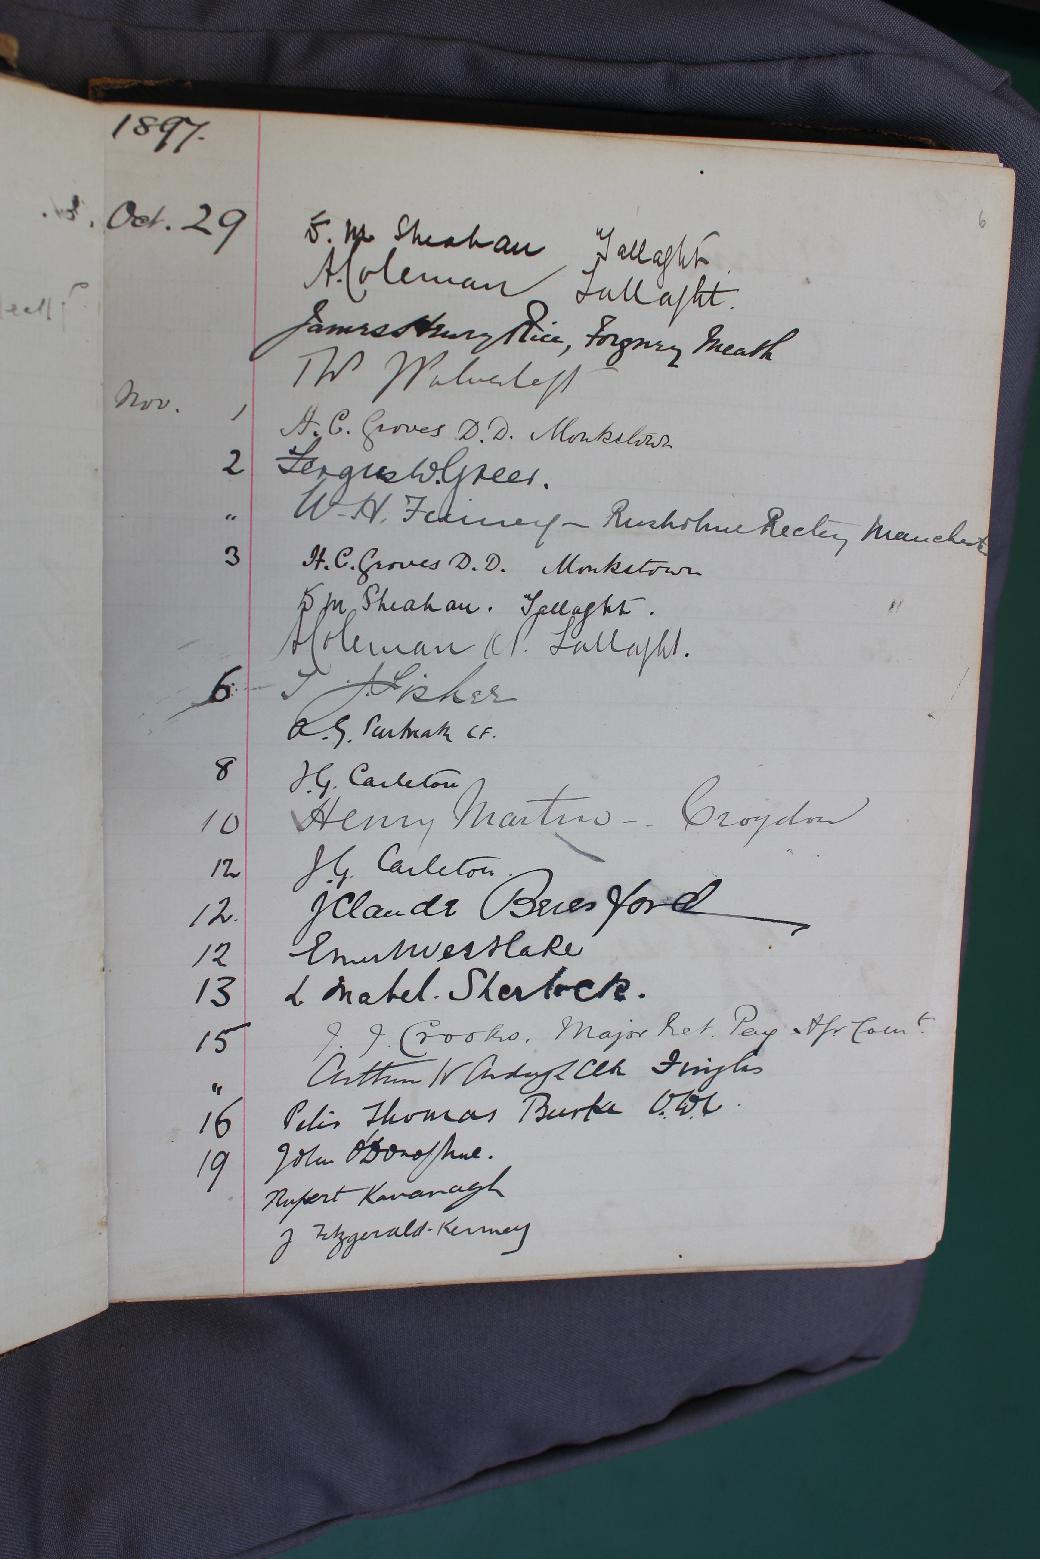 1897.
Oct. 29 D. M. Sheahan Tallaght
A. Coleman Tallaght.
James Henry Rice, Forgney Meath
TW
Nov. 1 H. C. Groves D.D. Monkstown
2 Fergus W. Greer.
" W. H. Finney - Rusholme Rectory Manchester
3 H. C. Groves D.D. Monkstown
D M Sheahan. Tallaght.
A Coleman Tallaght.
6 J. Fisher
C.F.
8 J. G. Carleton
10 Henry Martin - Croydon
12 J. G. Carleton
12. J Claude Beresford
12 Westlake
13 L Mabel. Sherlock.
15 J. J. Crooks. Major Ret. Pay
" Arthur W Ardagh Clk Finglas
16 Peter Thomas Burke
19 John O'Donoghue.
Rupert Kavanagh
J Fitzgerald-Kenney
6